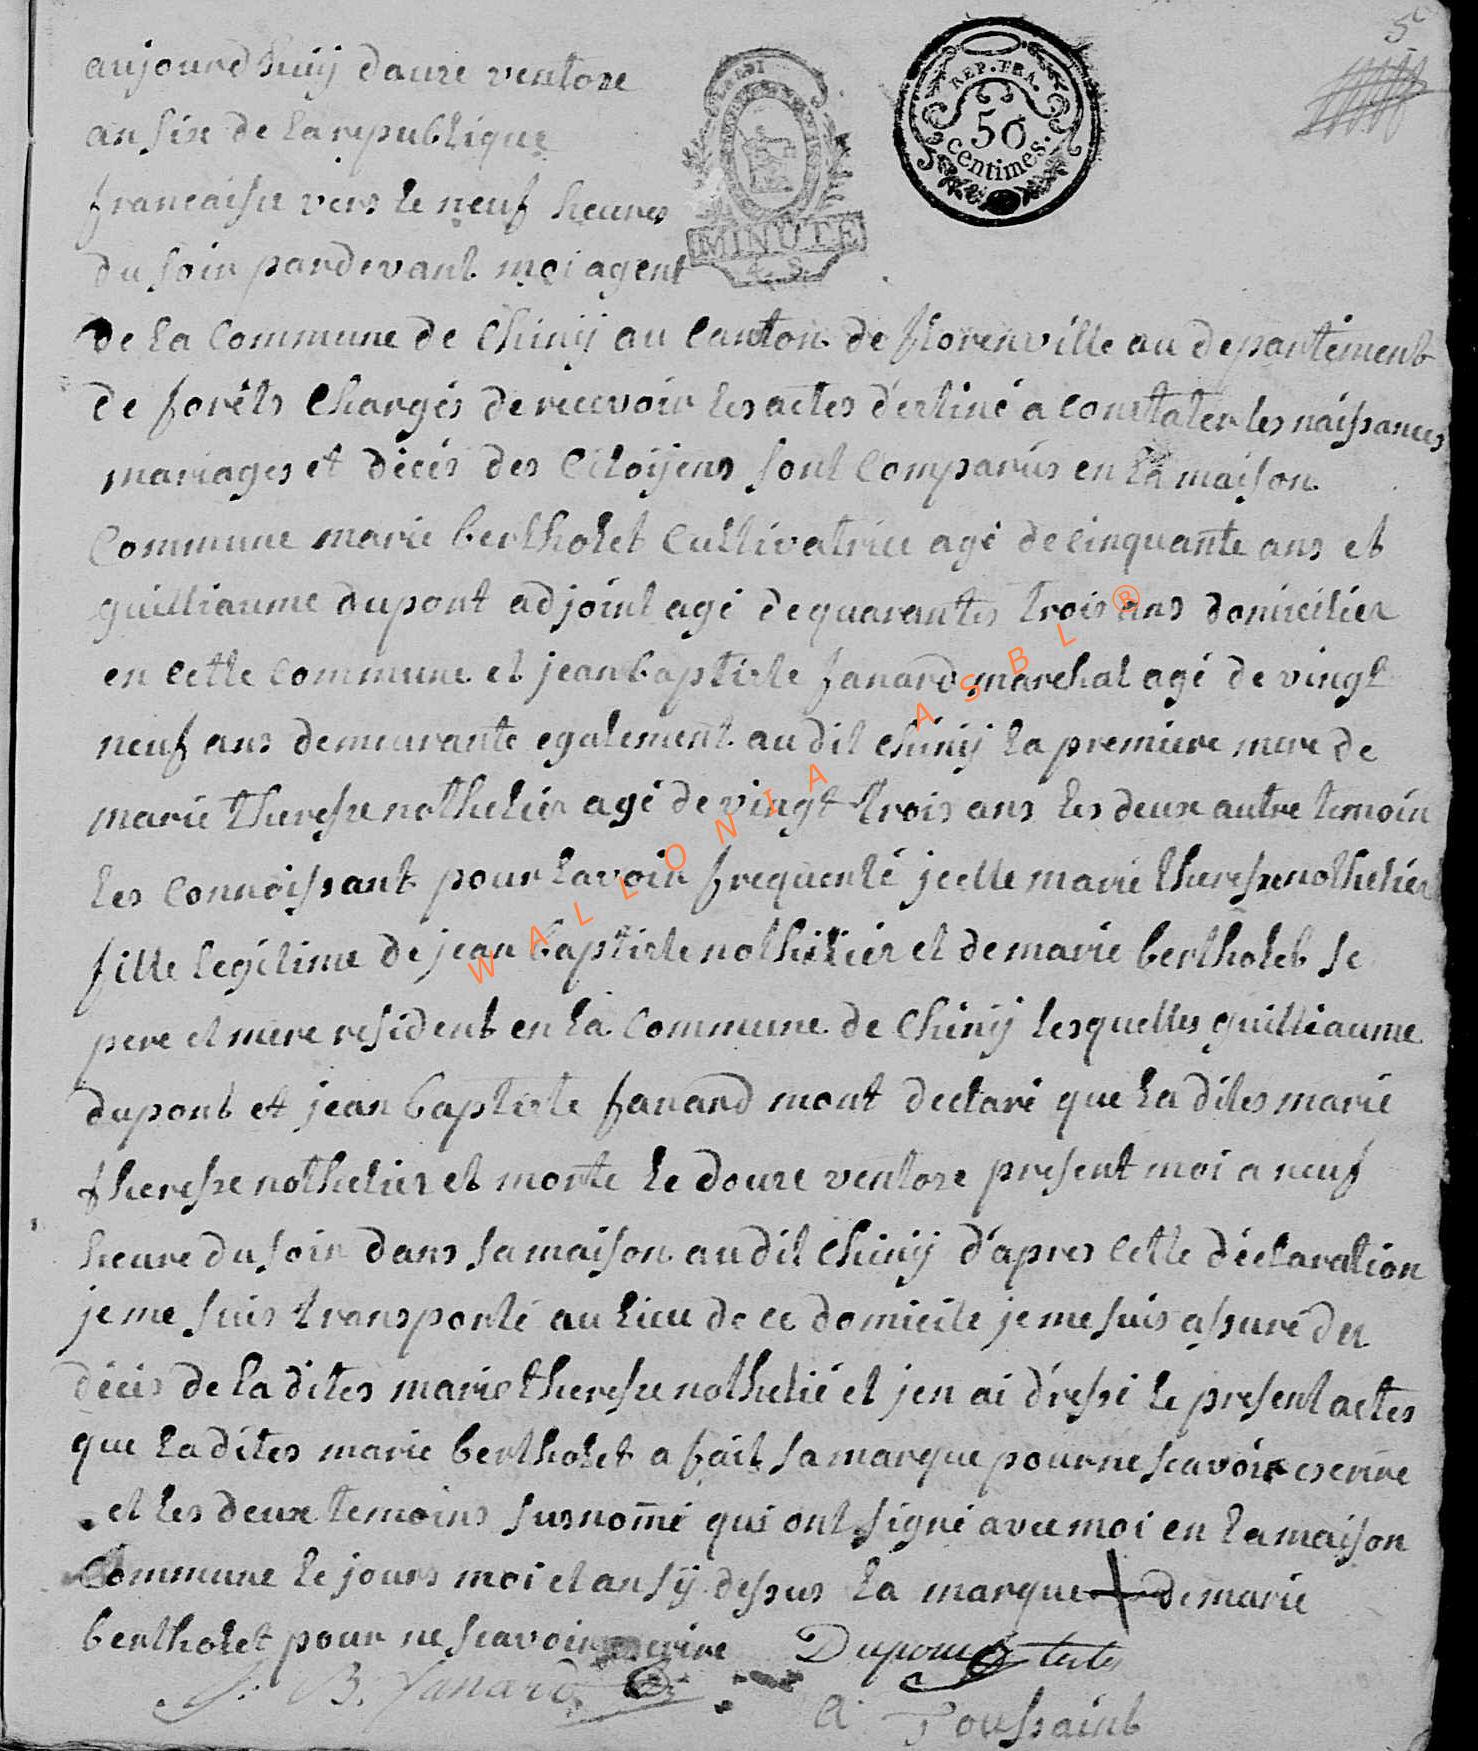 5e
aujourdhuij douze ventose
an six de la republique
francaise vers le neuf heures
du soir pardevant moi agent
MINUTE
REP. FRA.
50
centimes.
de la commune de Chinij au Canton de florenville au departement
de forêts Chargés de recevoir les actes d'estiné a constater les náissances
mariages et décés des Citoijens sont Comparûs en la maison
Commune marie bertholet Cultivatrice agé de cinquante ans et
guilliaume dupont adjoint agé de quarantes trois ans domicilier
en cette commune et jean baptiste fanard marchal agé de vingt
neuf ans demeurante egalement audit chinij la premiere mere de
marie therese nothelier agé de vingt trois ans les deux autre temoin
les Connoissant pour lavoir frequenté jcelle marie therese nothelier
fille legitime de jean baptiste nothelier et de marie bertholet se
pere et mere resident en la commune de Chinij lesquelles guilliaume
dupont et jean baptiste fanard mont declaré que la dites marie
therese nothelier et morte le douze ventose present moi a neuf
heure du soir dans sa maison audit Chinij d'apres cette déclaration
je me suis transporté au lieu de ce domicile je me suis assuré du
décés de la dites marie therese nothelié et jen ai dressé le present actes
que la dites marie bertholet a fait sa marque pour ne scavoir escrire
et les deux temoins susnom̄é qui ont signé avec moi en la maison
Commune le jours moi et an sÿ dessus la marque + de marie
bertholet pour ne scavoir escrire Dupont
J. B. fanard
a Toussaint
WALLONIA ASBL ®